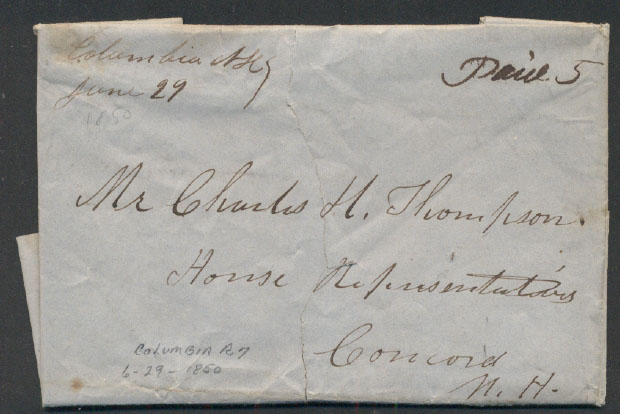 Columbia N H
June 29
1850
Paid 5
Mr Charles H. Thompson.
House Representatives
Concord
N. H.
COLUMBIA R7
6-29-1850